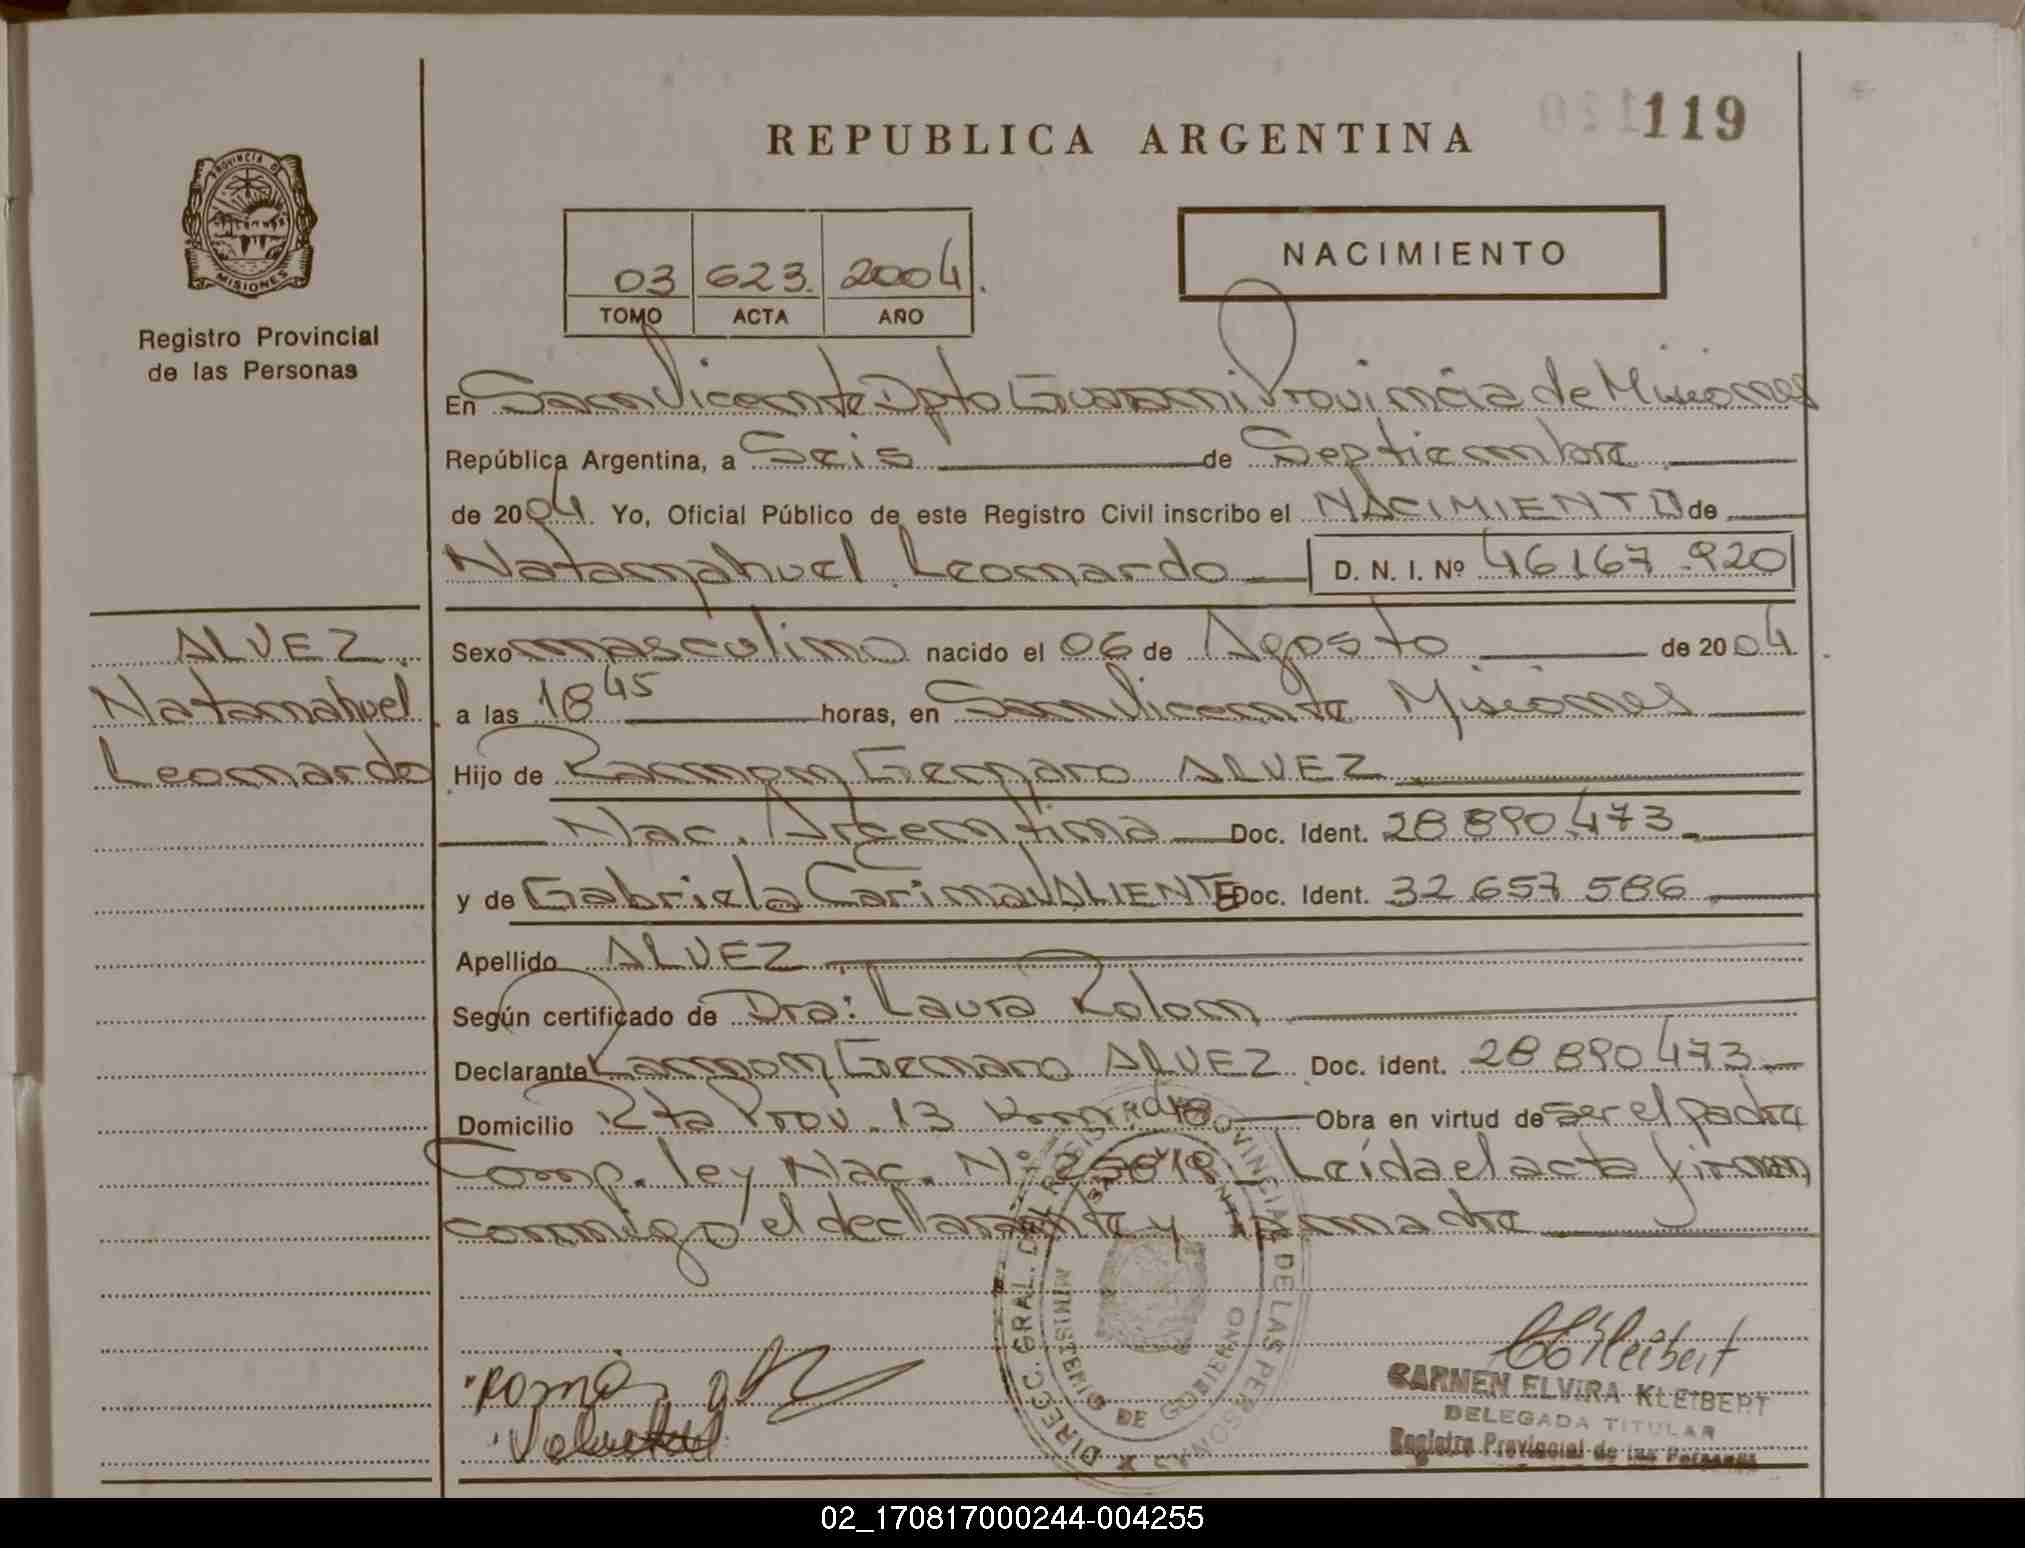 119
REPUBLICA ARGENTINA
PROVINCIA D
MISIONES
Registro Provincial
de las Personas
NACIMIENTO
03 623. 2004.
TOMO ACTA AÑO
En San Vicente Dpto Guarani Provincia de Misiones
República Argentina, a Seis de Septiembre
de 2004. Yo, Oficial Público de este Registro Civil inscribo el NACIMIENTO de
Natanahuel Leonardo D. N. I. Nº 46.167.920
ALVEZ
Natanahuel
Leonardo
Sexo masculino nacido el 06 de Agosto de 2004.
a las 18 45 horas, en San Vicente Misiones
Hijo de Ramon Genaro ALVEZ
Nac. Argentina Doc. Ident. 28.890.473
y de Gabriela Carina VALIENTE Doc. Ident. 32.657.586
Apellido ALVEZ
Según certificado de Dra: Laura Rolon
Declarante Ramon Genaro ALVEZ Doc. ident. 28.890.473
Domicilio Rta Prov. 13 Obra en virtud de ser el padre
Comp. ley Nac. Nº 25818 Leída el acta firman
conmigo el declarante y la madre
DIRECC. GRAL. DEL REGISTRO PROVINCIAL DE LAS PERSONAS
MINISTERIO DE GOBIERNO
CARMEN ELVIRA KLEIBERT
DELEGADA TITULAR
Registro Provincial de las Personas
02_170817000244-004255